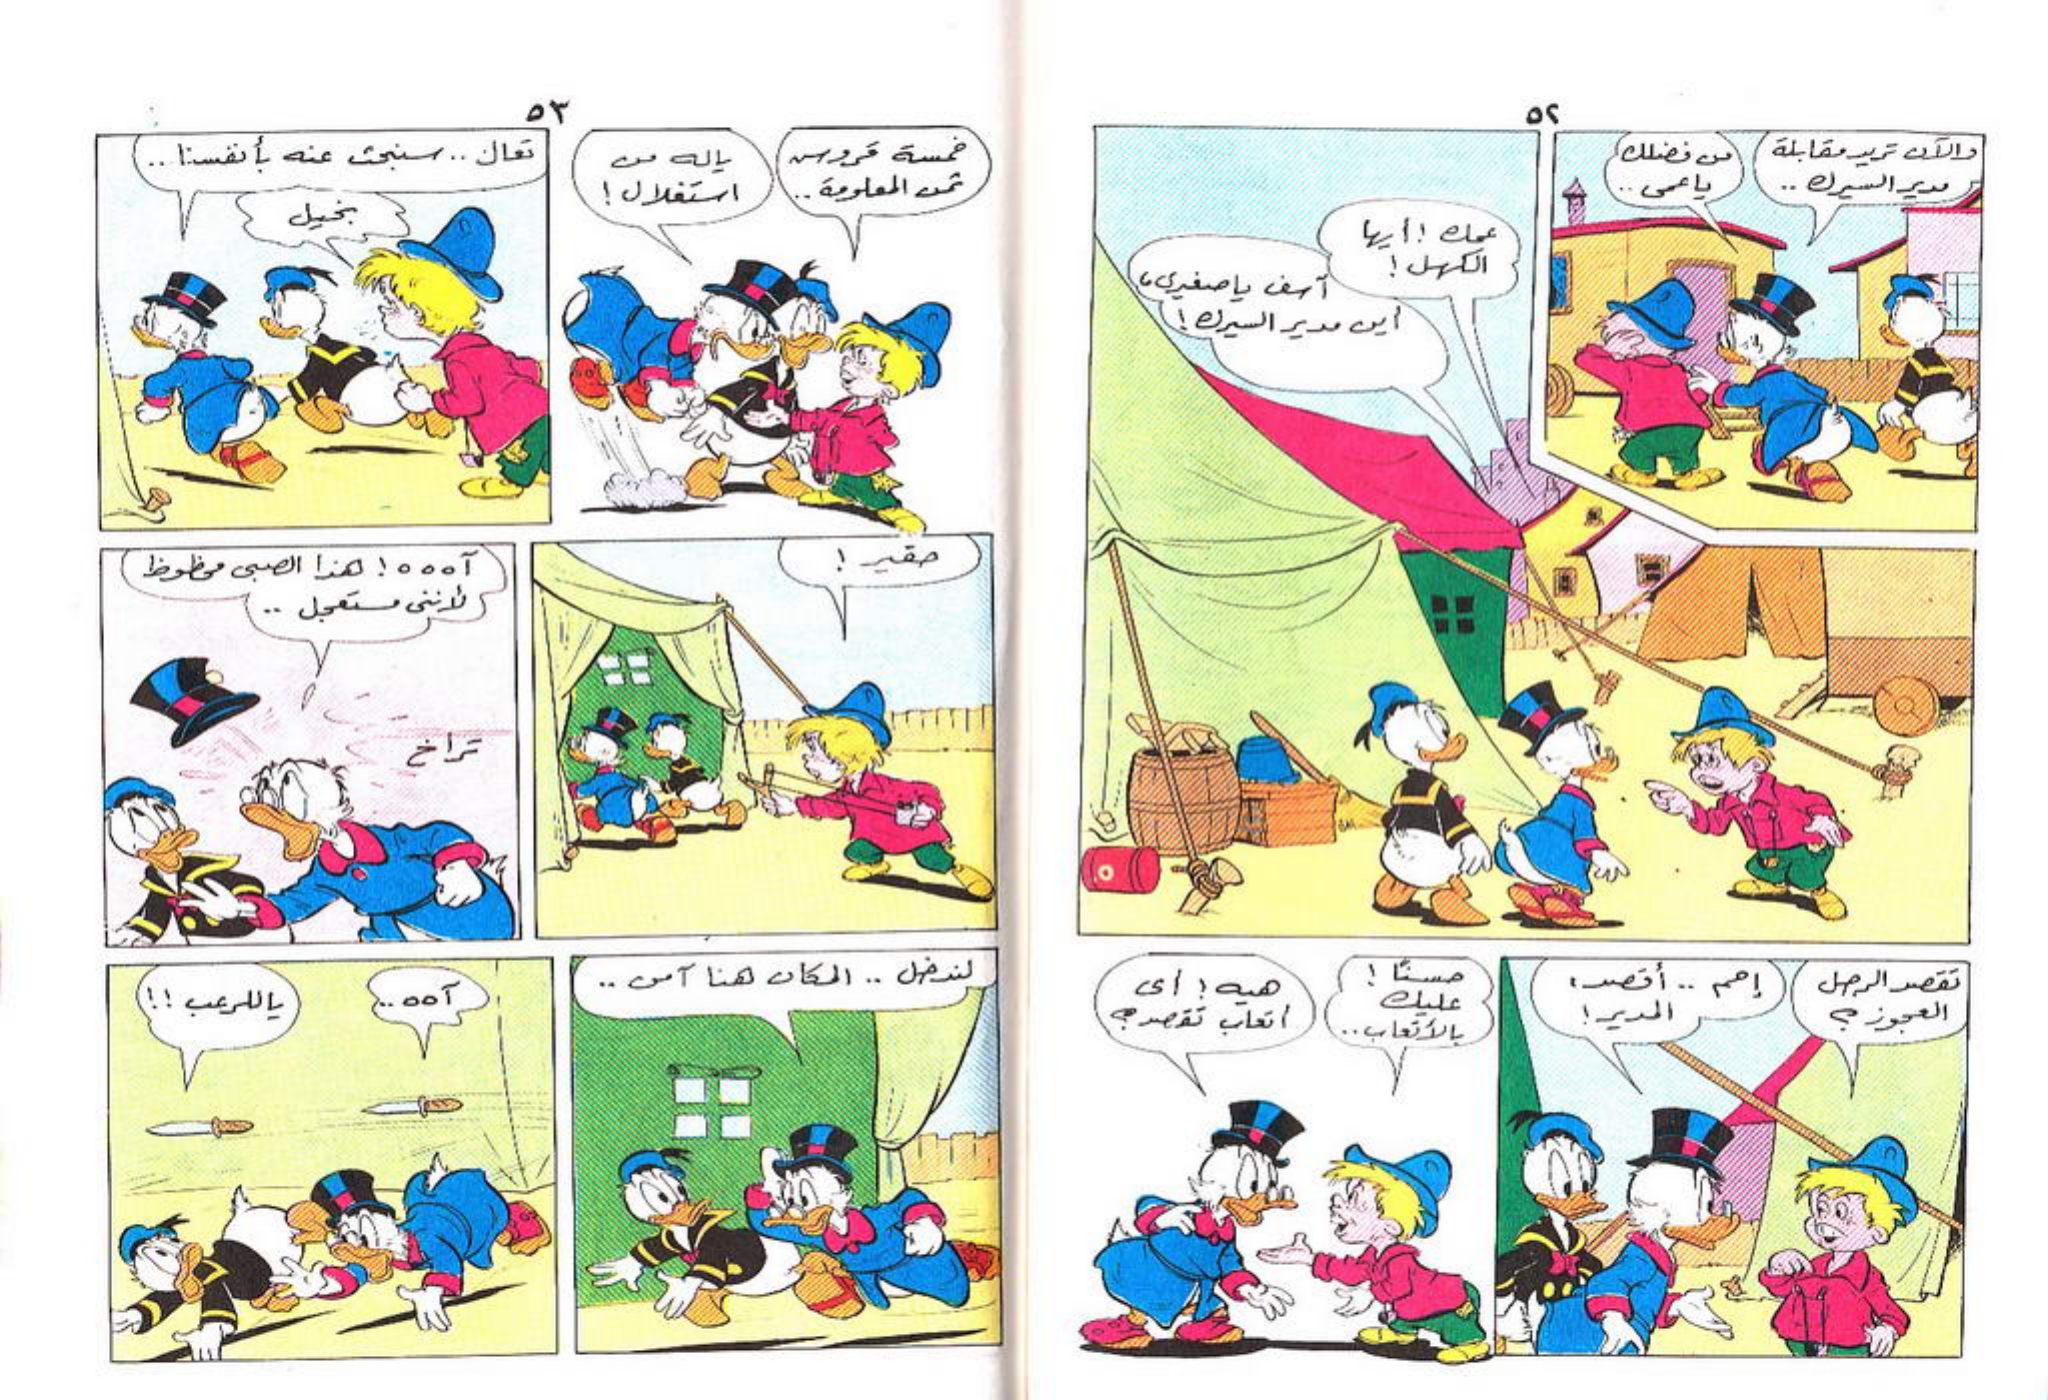 ٥٢
والآن نريد مقابلة
مدير السيرك ..
من فضلك
ياعمى ..
عمك ! أيها
الكهل !
آسف ياصغيرى ،
أين مدير السيرك !
تقصد الرجل
العجوز ؟
إحم .. أقصد ،
المدير !
حسنًا !
عليك
بالأتعاب ..
هيه ! أى
أتعاب تقصد ؟
٥٣
خمسة قروش
ثمن المعلومة ..
ياله من
استغلال !
تعال .. سنبحث عنه بأنفسنا ..
بخيل
حقير !
آههه ! هذا الصبى محظوظ
لأننى مستعجل ..
تراخ
لندخل .. المكان هنا آمن ..
آهه ..
ياللرعب !!